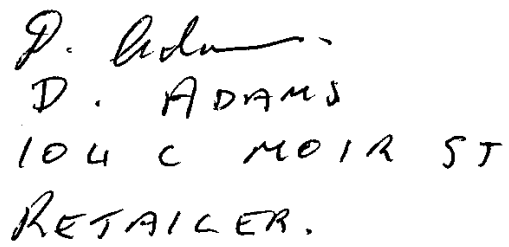 D. Adams.
D. ADAMS
104 C MOIR ST
RETAILER.